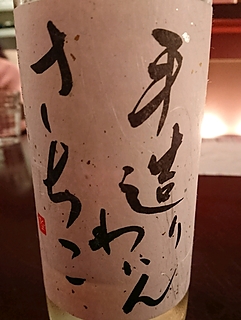 手造り
わいん
さちこ